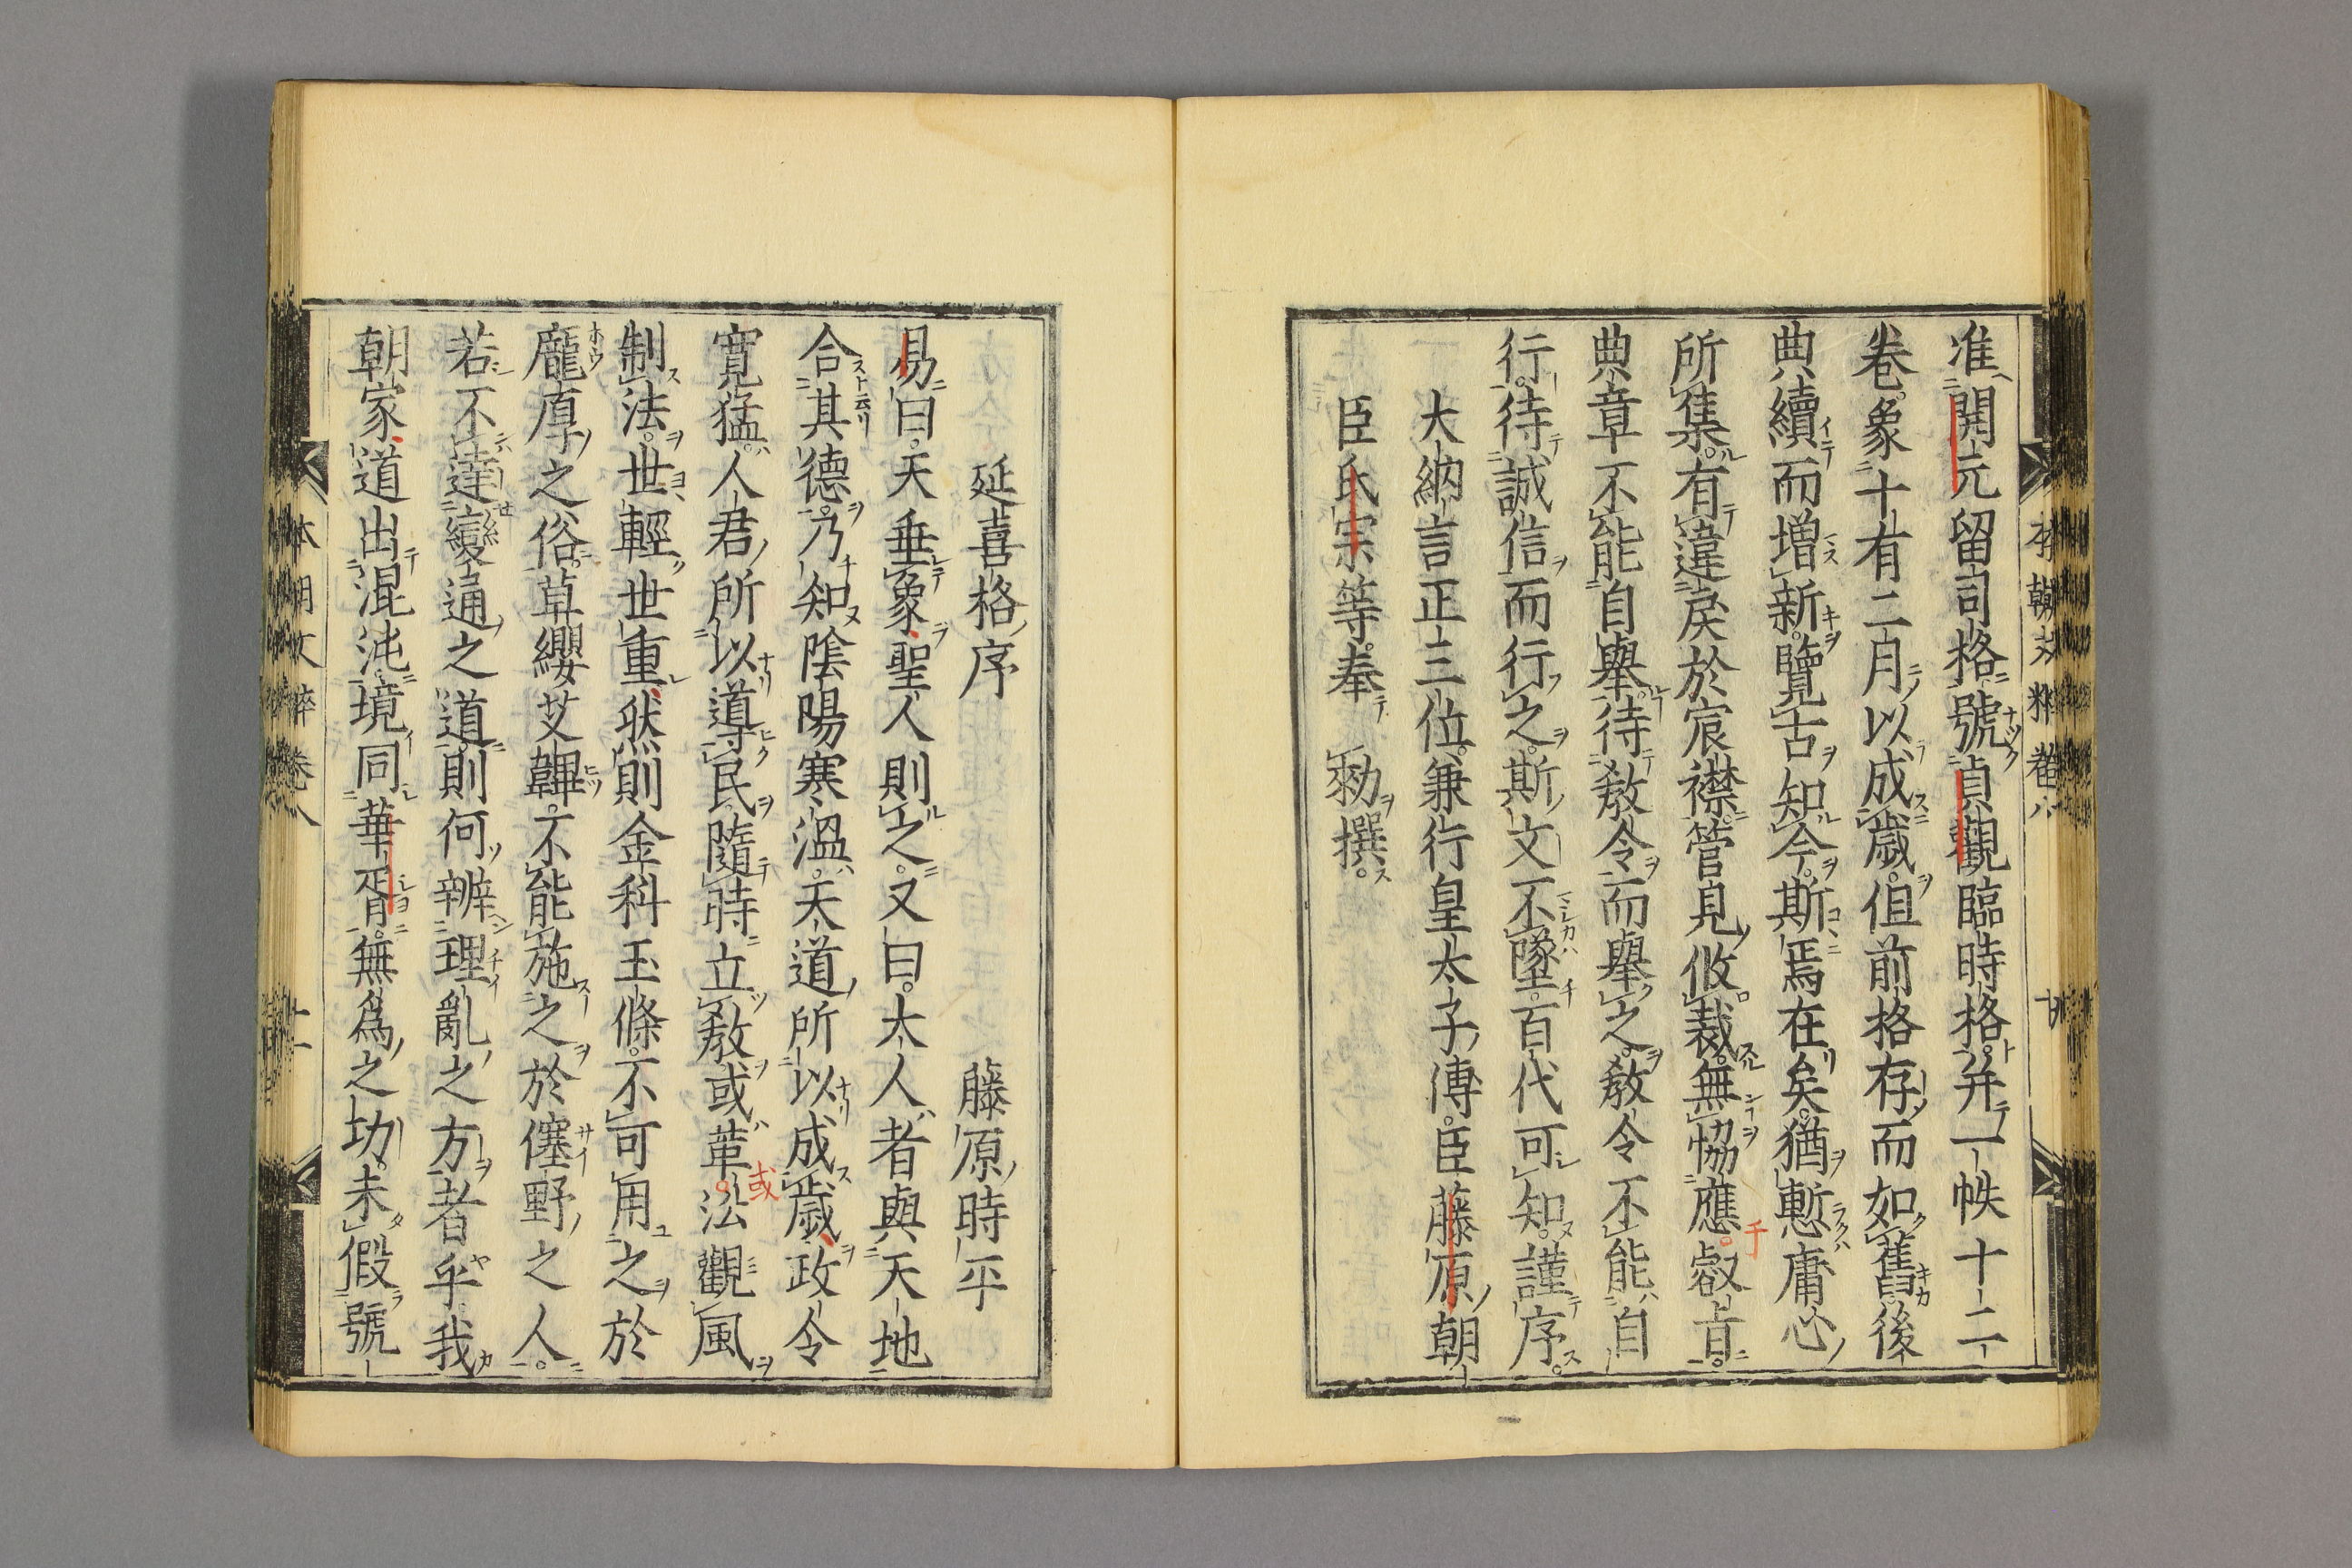 准開元留司格號貞觀臨時格。并一帙十二
卷。象十有二月以成歳。但前格存而如舊後
典續而増新。覽古知今。斯焉在矣。猶慙庸心
所集。有違戻於宸襟。管見攸裁。無協應叡旨。
典章不能自擧。待敎令而擧之。敎令不能自
行。待誠信而行之。斯文不墜。百代可知。謹序。
大納言正三位。兼行皇太子傅。臣藤原朝
臣氏宗等。奉 勅撰。
延喜格序 藤原時平
易曰。天垂象。聖人則之。又曰。太人者與天地
合其德。乃知陰陽寒溫。天道所以成歳。政令
寛猛。人君所以導民。隨時立敎。或革。或
沿觀風
制法。世輕世重。然則金科玉條。不可用之於
龐厚之俗。草纓艾韠。不能施之於僿野之人。
若不達變通之道。則何辨理亂之方者乎。我
朝家。道出混沌。境同華胥。無爲之功。未假號
千
本朝文粹卷八
十
本朝文粹卷八
十一